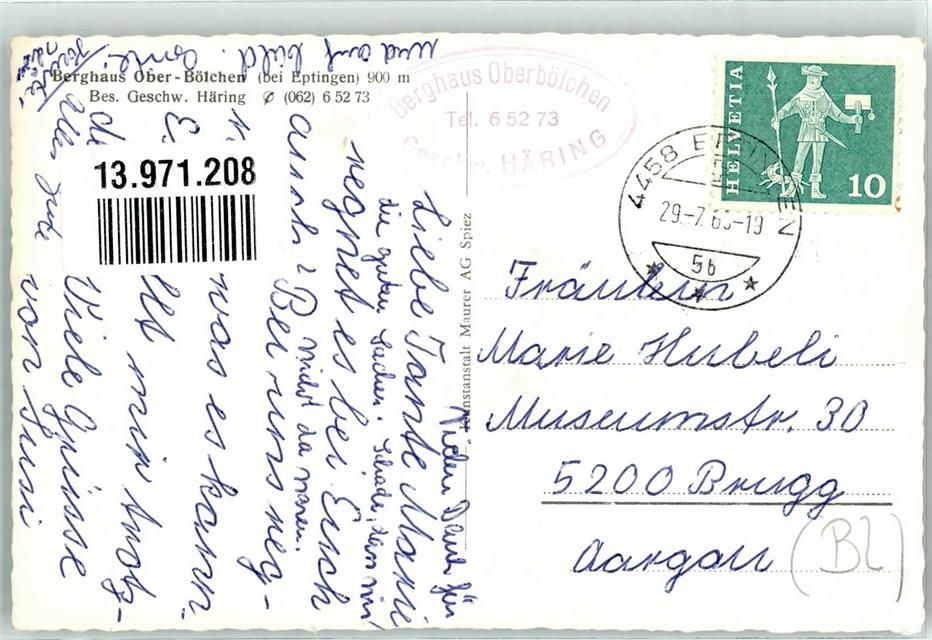 Berghaus Ober-Bölchen (bei Eptingen) 900 m
Bes. Geschw. Häring ✆ (062) 6 52 73
Berghaus Oberbölchen
Tel. 6 52 73
Geschw. HÄRING
HELVETIA
10
4458 EPTINGEN
29.-7.6 -19
5b
13.971.208
Kunstanstalt Maurer AG Spiez
Liebe Tante Marie
regnet es bei Euch
auch? Bei uns reg-
was es kann.
mir trotz-
Viele Grüsse
von
Vielen Dank für
die guten Sachen. Schade, dass wir
nicht da waren.
Alles Gute
und auf bald.
Fräulein
Marie Hubeli
Museumstr. 30
5200 Brugg
Aargau
(BL)